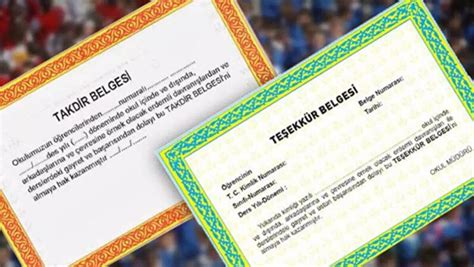 TAKDİR BELGESİ
Okulumuzun öğrencilerinden.........numaralı...............
.....des yılı (.....) döneminde okul içinde ve dışında,
arkadaşlarına ve çevresine örnek olacak erdemli davranışlardan ve
derslerdeki gayret ve başarısından dolayı bu TAKDİR BELGESİ'ni
almaya hak kazanmıştır
TEŞEKKÜR BELGESİ
Belge Numarası:
Tarihi:
Öğrencinin
T. C. Kimlik Numarası:
Sınıfı-Numarası:
Ders Yılı-Dönemi:
Yukarıda kimliği yazılı okul içinde
ve dışında, arkadaşlarına ve çevresine örnek olacak erdemli davranışları ile
derslerdeki gayret ve üstün başarısından dolayı bu TEŞEKKÜR BELGESİ'ni
almaya hak kazanmıştır.
OKUL MÜDÜRÜ